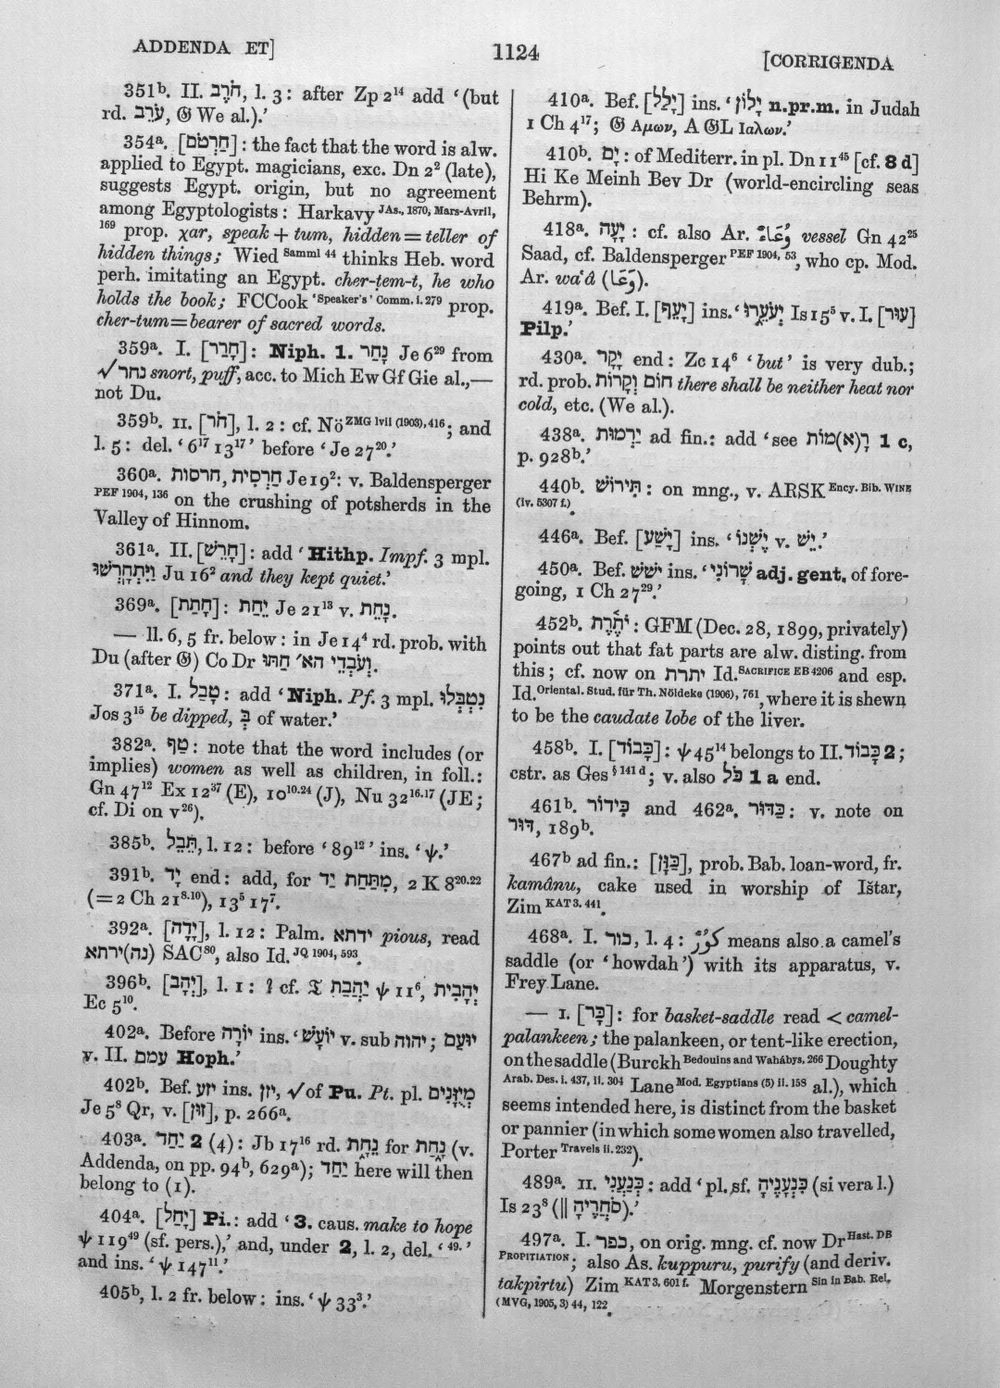 ADDENDA ET]
1124
[CORRIGENDA
351ᵇ. II. חֹרֶב, l. 3: after Zp 2¹⁴ add ‘(but
rd. עֹרֵב, 𝔊 We al.).’
354ᵃ. [חַרְטֹם]: the fact that the word is alw.
applied to Egypt. magicians, exc. Dn 2² (late),
suggests Egypt. origin, but no agreement
among Egyptologists: Harkavy JAs., 1870, Mars-Avril,
169 prop. χar, speak + tum, hidden = teller of
hidden things; Wied Samml 44 thinks Heb. word
perh. imitating an Egypt. cher-ṭem-t, he who
holds the book; FCCook ‘Speaker's’ Comm. i. 279 prop.
cher-tum = bearer of sacred words.
359ᵃ. I. [חָרַר]: Niph. 1. נָחַר Je 6²⁹ from
√נחר snort, puff, acc. to Mich Ew Gf Gie al.,—
not Du.
359ᵇ. II. [חֹר], l. 2: cf. Nö ZMG lvii (1903), 416; and
l. 5: del. ‘6¹⁷ 13¹⁷’ before ‘Je 27²⁰.’
360ᵃ. חַרְסִית, חרסות Je 19²: v. Baldensperger
PEF 1904, 136 on the crushing of potsherds in the
Valley of Hinnom.
361ᵃ. II. [חָרֵשׁ]: add ‘Hithp. Impf. 3 mpl.
וַיִּתְחָרְשׁוּ Ju 16² and they kept quiet.’
369ᵃ. [חָתַת]: יֵחַת Je 21¹³ v. נָחֵת.
— ll. 6, 5 fr. below: in Je 14⁴ rd. prob. with
Du (after 𝔊) Co Dr וְעֹבְדֵי הא׳ חַתּוּ.
371ᵃ. I. טָבַל: add ‘Niph. Pf. 3 mpl. נִטְבְּלוּ
Jos 3¹⁵ be dipped, בְּ of water.’
382ᵃ. טַף: note that the word includes (or
implies) women as well as children, in foll.:
Gn 47¹² Ex 12³⁷ (E), 10¹⁰·²⁴ (J), Nu 32¹⁶·¹⁷ (JE;
cf. Di on v²⁶).
385ᵇ. תֵּבֵל, l. 12: before ‘89¹²’ ins. ‘ψ.’
391ᵇ. יָד end: add, for מִתַּחַת יַד, 2 K 8²⁰·²²
(= 2 Ch 21⁸·¹⁰), 13⁵ 17⁷.
392ᵃ. [יָדָה], l. 12: Palm. ידתא pious, read
ירתא(נה) SAC⁸⁰, also Id. JQ 1904, 593.
396ᵇ. [יְהָב], l. 1: ? cf. 𝔗 יַהֲבַת ψ 11⁶, יְהָבִית
Ec 5¹⁰.
402ᵃ. Before יוֹרָה ins. ‘יוֹעָשׁ v. sub יהוה; יוּעַם
v. II. עמם Hoph.’
402ᵇ. Bef. יזע ins. יזן, √ of Pu. Pt. pl. מְיֻזָּנִים
Je 5⁸ Qr, v. [זון], p. 266ᵃ.
403ᵃ. יַחַד 2 (4): Jb 17¹⁶ rd. נֵחַת for נָחַת (v.
Addenda, on pp. 94ᵇ, 629ᵃ); יַחַד here will then
belong to (1).
404ᵃ. [יָחַל] Pi.: add ‘3. caus. make to hope
ψ 119⁴⁹ (sf. pers.),’ and, under 2, l. 2, del. ‘49.’
and ins. ‘ψ 147¹¹.’
405ᵇ, l. 2 fr. below: ins. ‘ψ 33³.’
410ᵃ. Bef. [יָלַל] ins. ‘יָלוֹן n.pr.m. in Judah
1 Ch 4¹⁷; 𝔊 Αμων, A 𝔊L Ιαλων.’
410ᵇ. יָם: of Mediterr. in pl. Dn 11⁴⁵ [cf. 8 d]
Hi Ke Meinh Bev Dr (world-encircling seas
Behrm).
418ᵃ. יָעָה: cf. also Ar. وُعَاءٌ vessel Gn 42²⁵
Saad, cf. Baldensperger PEF 1904, 53, who cp. Mod.
Ar. wa‘â (وَعَا).
419ᵃ. Bef. I. [יָעַף] ins. ‘יְעֹעֵרוּ Is 15⁵ v. I. [עור]
Pilp.’
430ᵃ. יָקָר end: Zc 14⁶ ‘but’ is very dub.;
rd. prob. חוֹם וְקָרוֹת there shall be neither heat nor
cold, etc. (We al.).
438ᵃ. יַרְמוּת ad fin.: add ‘see רָ(א)מוֹת 1 c,
p. 928ᵇ.’
440ᵇ. תִּירוֹשׁ: on mng., v. ARSK Ency. Bib. WINE
(iv. 5307 f.).
446ᵃ. Bef. [יָשַׁע] ins. ‘יֶשְׁנוֹ v. יֵשׁ.’
450ᵃ. Bef. ישׁשׁ ins. ‘שָׁרוֹנִי adj. gent. of fore-
going, 1 Ch 27²⁹.’
452ᵇ. יֹתֶרֶת: GFM (Dec. 28, 1899, privately)
points out that fat parts are alw. disting. from
this; cf. now on יתרת Id. SACRIFICE EB 4206 and esp.
Id. Oriental. Stud. für Th. Nöldeke (1906), 761, where it is shewn
to be the caudate lobe of the liver.
458ᵇ. I. [כָּבוֹד]: ψ 45¹⁴ belongs to II. כָּבוֹד 2;
cstr. as Ges § 141 d; v. also כֹּל 1 a end.
461ᵇ. כִּידוֹר and 462ᵃ. כַּדּוּר: v. note on
דּוּר, 189ᵇ.
467ᵇ ad fin.: [כַּוָּן], prob. Bab. loan-word, fr.
kamânu, cake used in worship of Ištar,
Zim KAT 3. 441.
468ᵃ. I. כור, l. 4: كُورٌ means also a camel's
saddle (or ‘howdah’) with its apparatus, v.
Frey Lane.
— 1. [כַּר]: for basket-saddle read < camel-
palankeen; the palankeen, or tent-like erection,
on the saddle (Burckh Bedouins and Wahábys, 266 Doughty
Arab. Des. i. 437, ii. 304 Lane Mod. Egyptians (5) ii. 158 al.), which
seems intended here, is distinct from the basket
or pannier (in which some women also travelled,
Porter Travels ii. 232).
489ᵃ. II. כְּנַעֲנִי: add ‘pl. sf. כִּנְעָנֶיהָ (si vera l.)
Is 23⁸ (|| סֹחֲרֶיהָ).’
497ᵃ. I. כפר, on orig. mng. cf. now Dr Hast. DB
PROPITIATION; also As. kuppuru, purify (and deriv.
takpirtu) Zim KAT 3, 601 f. Morgenstern Sin in Bab. Rel.
(MVG, 1905, 3) 44, 122.